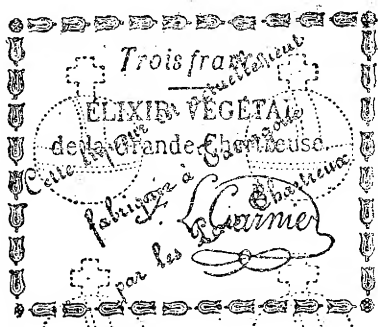 Trois francs
ELIXIR VÉGÉTAL
de la Grande Chartreuse.
Cette liqueur est actuellement
fabriquée à Tarragone
par les Pères Chartreux
L. Garnier